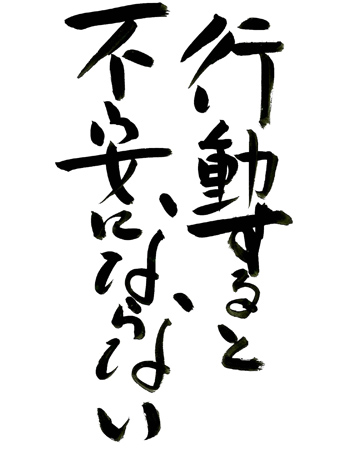 行動すると
不安にならない